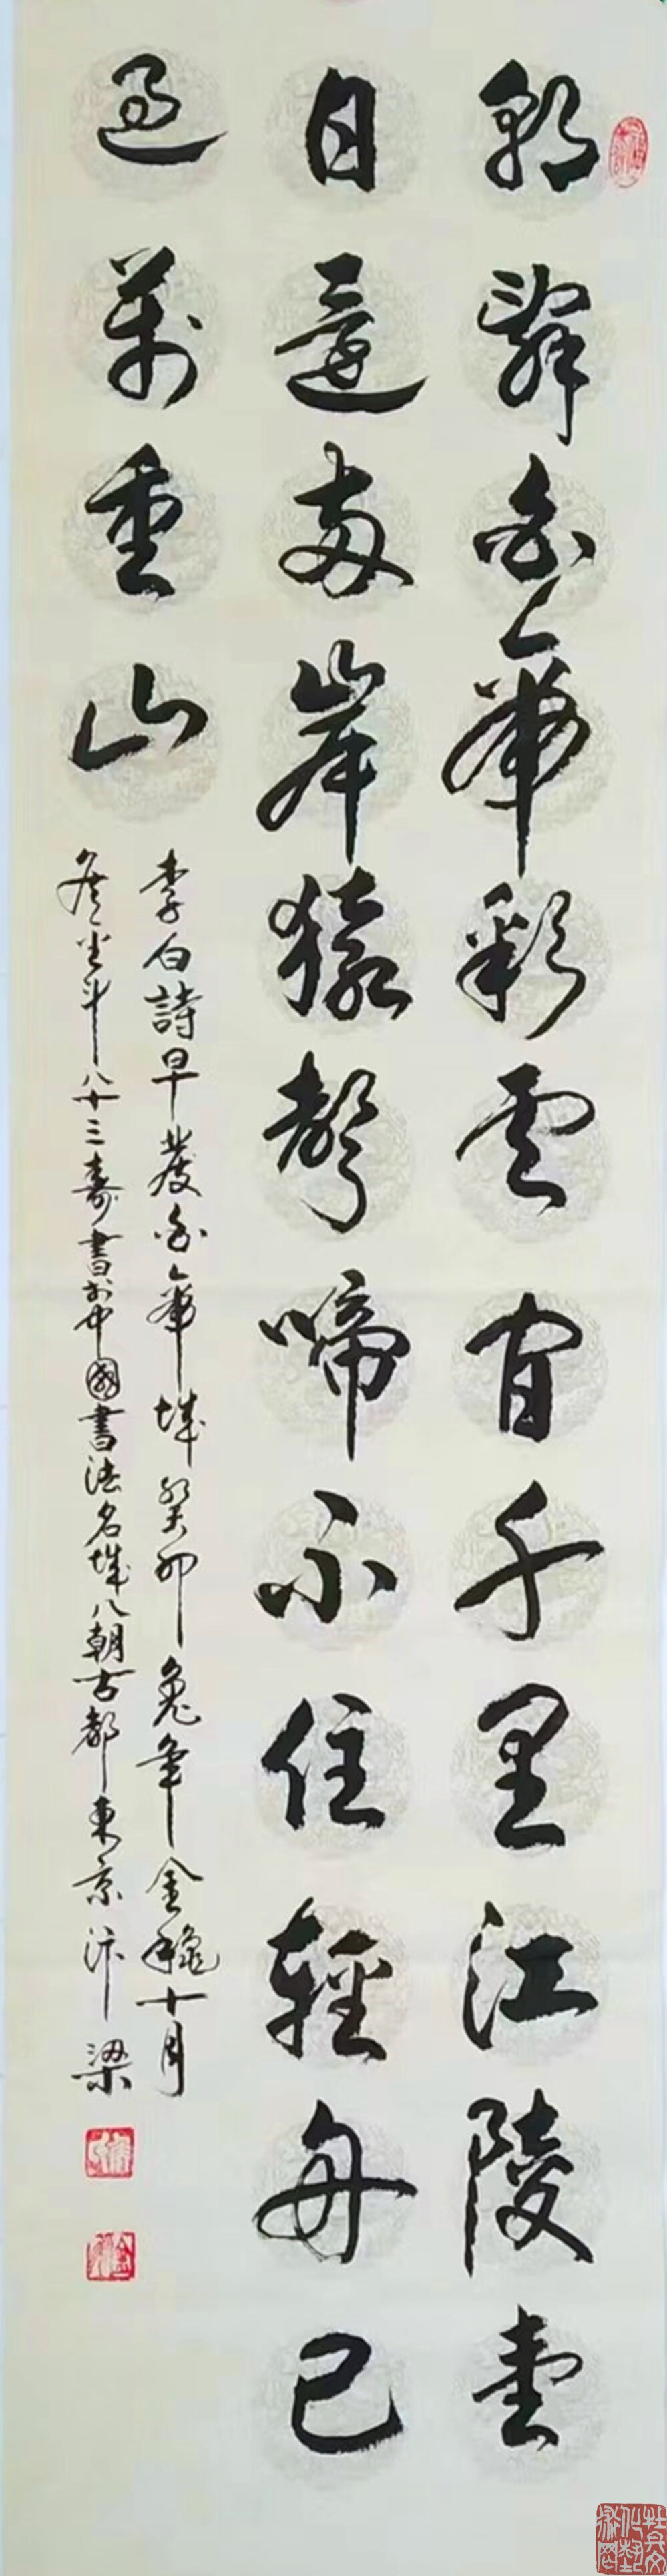 朝辭白帝彩雲間千里江陵壹
日還兩岸猿聲啼不住輕舟已
過萬重山
李白詩早發白帝城癸卯兔年金龝十月
侯金斗八十三壽書於中國書法名城八朝古都東京汴梁